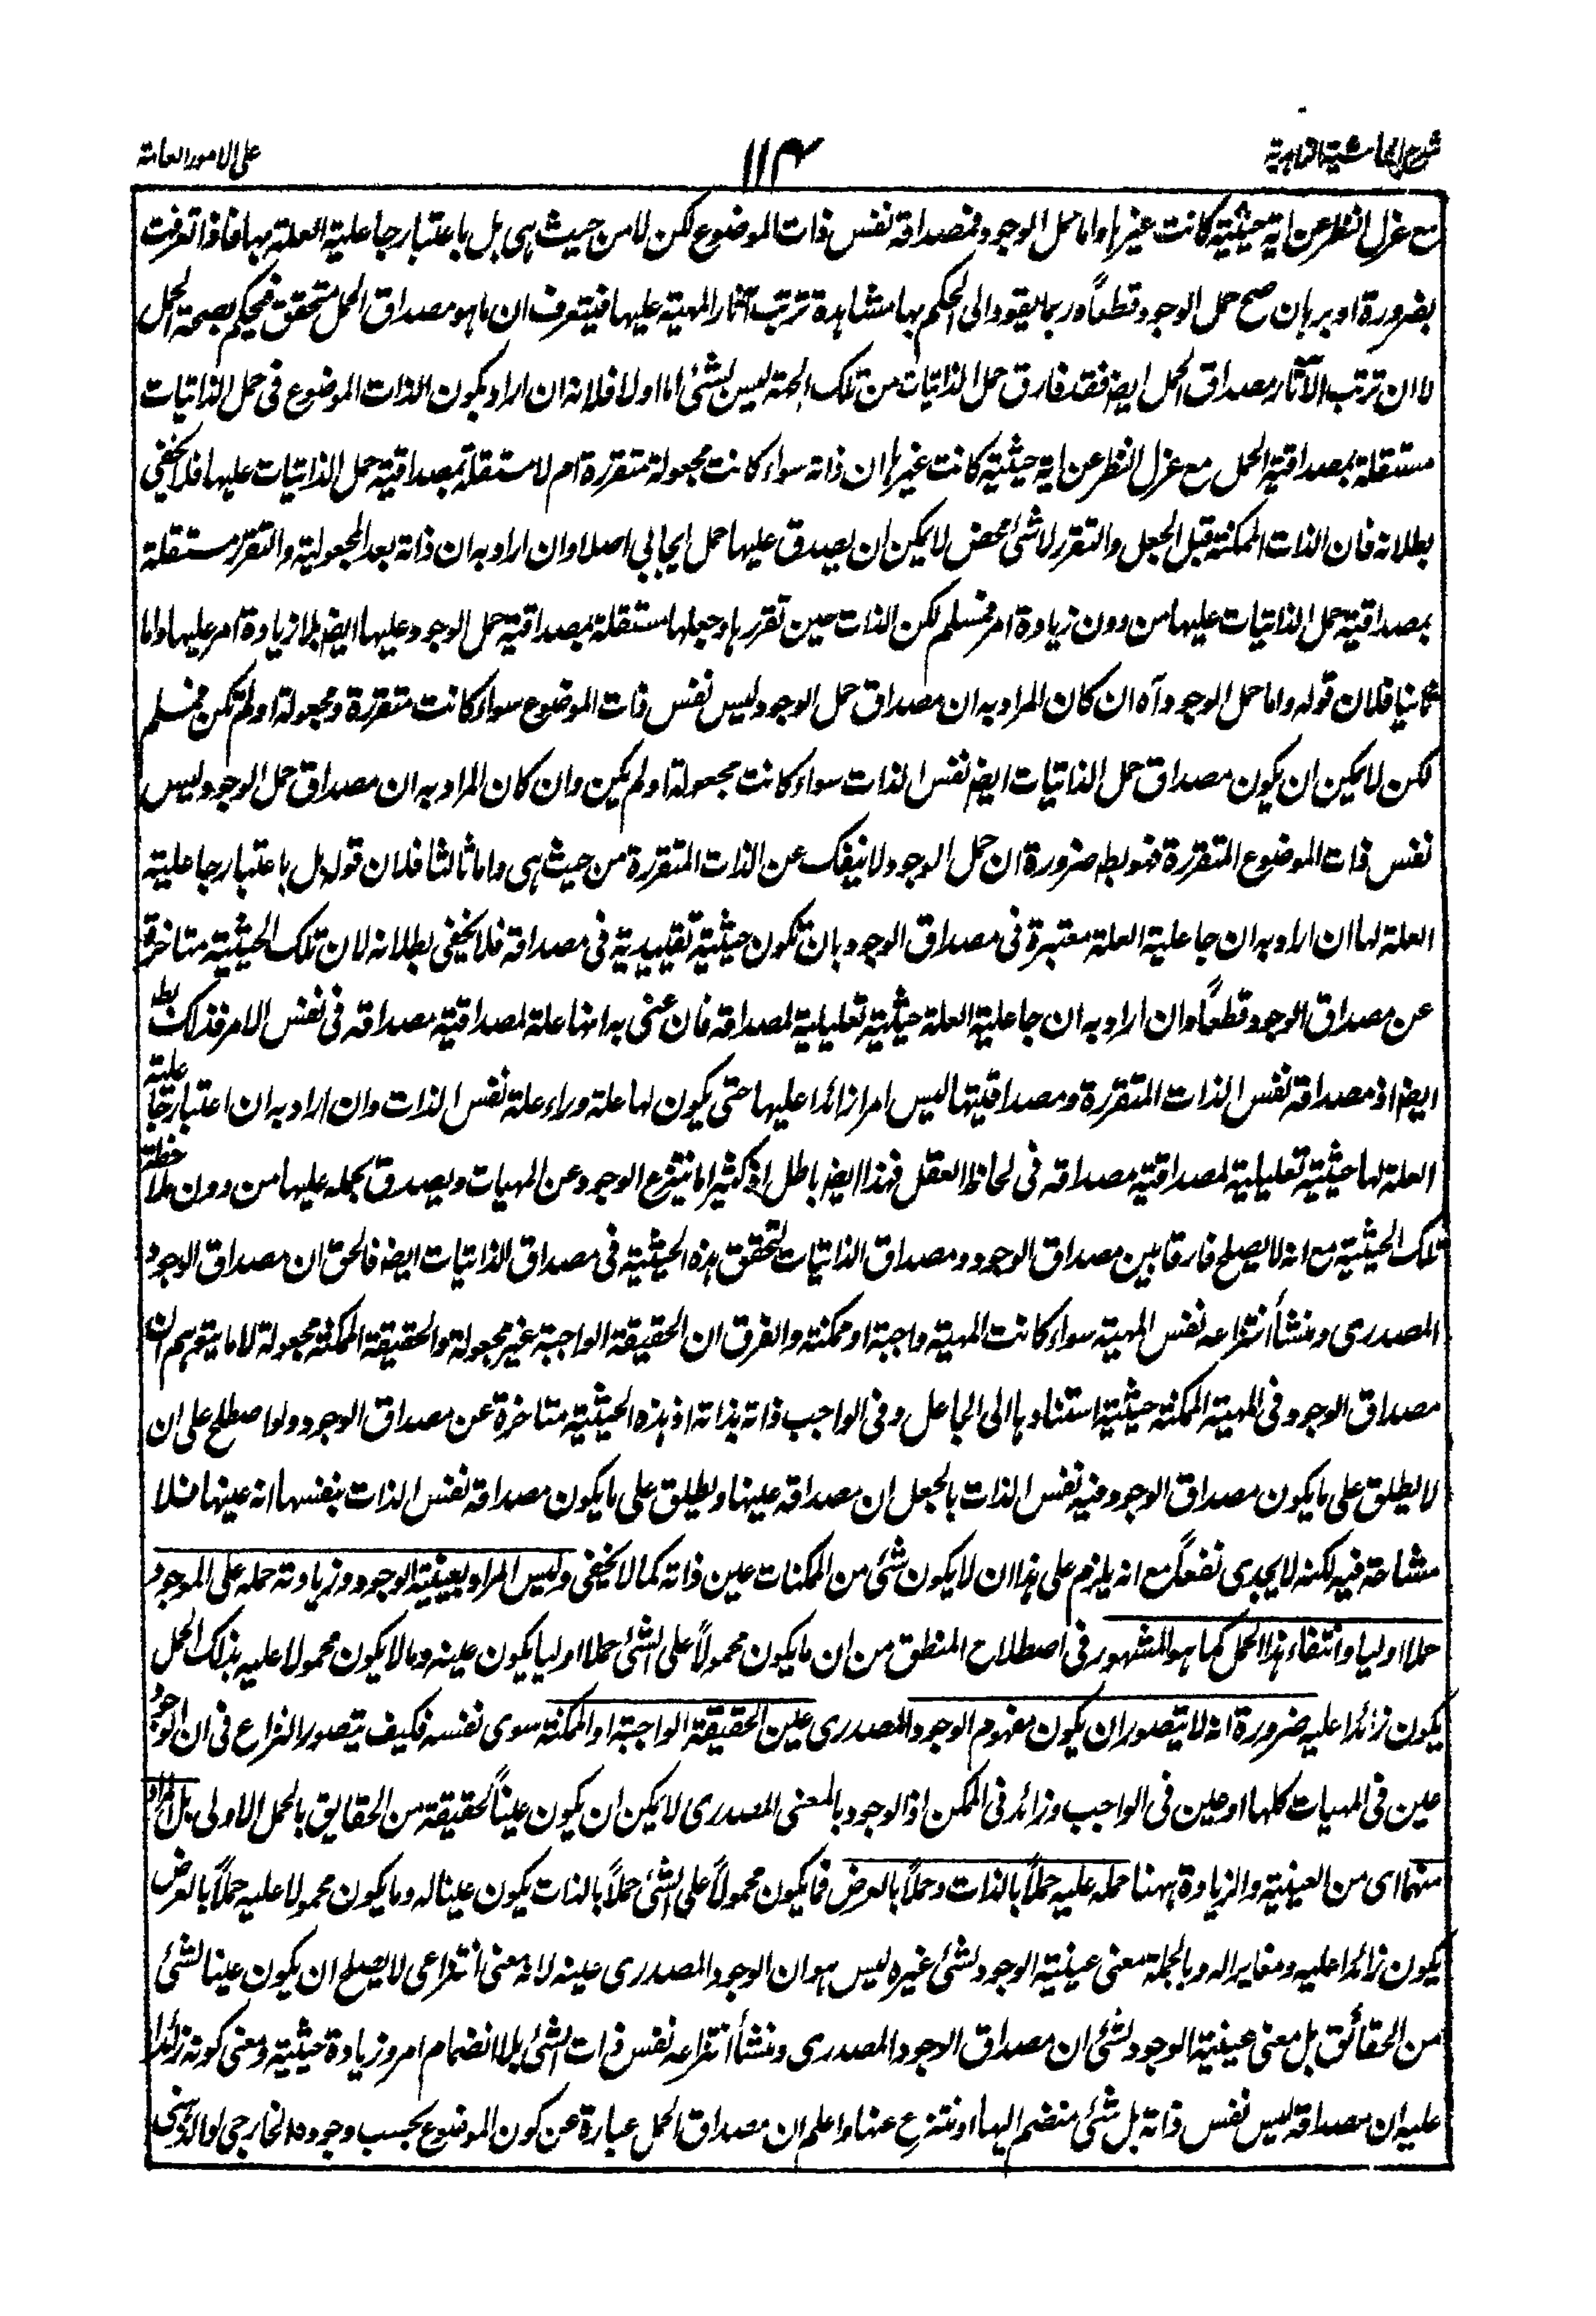 شرح الحاشية الزاهدية
١١٤
على الامور العامة
مع عزل النظر عن اية حيثية كانت غيرها واما حمل الوجود فمصداقه نفس ذات الموضوع لكن لا من حيث هى بل باعتبار جاعلية العلة لها فاذا تعرفت
بضرورة او برهان صح حمل الوجود قطعاً وربما يقود الى الحكم بها مشاهدة ترتب آثار المهية عليها فيتعرف ان ما هو مصداق الحمل متحقق فيحكم بصحة الحمل
لا ان ترتب الآثار مصداق الحمل ايضا فقد فارق حمل الذاتيات من تلك الجهة ليس بشئ اما اولا فلانه ان اراد بكون الذات الموضوع فى حمل الذاتيات
مستقلة بمصداقية الحمل مع عزل النظر عن اية حيثية كانت غيرها ان ذاته سواء كانت مجعولة متقررة ام لا مستقلة بمصداقية حمل الذاتيات عليها فلا يخفى
بطلانه فان الذات الممكنة قبل الجعل والتقرر لا شئ محض لا يمكن ان يصدق عليها حمل ايجابى اصلا وان اراد به ان ذاته بعد المجعولية والتقرر مستقلة
بمصداقية حمل الذاتيات عليها من دون زيادة امر فمسلم لكن الذات حين تقررها وجعلها مستقلة بمصداقية حمل الوجود عليها ايضا بلا زيادة امر عليها واما
ثانيا فلان قوله واما حمل الوجود آه ان كان المراد به ان مصداق حمل الوجود ليس نفس ذات الموضوع سواء كانت متقررة ومجعولة او لم تكن فمسلم
لكن لا يمكن ان يكون مصداق حمل الذاتيات ايضا نفس الذات سواء كانت مجعولة او لم يكن وان كان المراد به ان مصداق حمل الوجود ليس
نفس ذات الموضوع المتقررة فهو بط ضرورة ان حمل الوجود لا ينفك عن الذات المتقررة من حيث هى واما ثالثا فلان قوله بل باعتبار جاعلية
العلة لها ان اراد به ان جاعلية العلة معتبرة فى مصداق الوجود بان تكون حيثية تقييدية فى مصداقه فلا يخفى بطلانه لان تلك الحيثية متاخرة
عن مصداق الوجود قطعاً وان اراد به ان جاعلية العلة حيثية تعليلية لمصداقه فان عنى به انها علة لمصداقية مصداقه فى نفس الامر فذلك بط
ايضا اذ مصداقه نفس الذات المتقررة ومصداقيتها ليس امرا زائدا عليها حتى يكون لها علة وراء علة نفس الذات وان اراد به ان اعتبار جاعلية
العلة لها حيثية تعليلية لمصداقية مصداقه فى لحاظ العقل فهذا ايضا باطل اذ كثيرا ما ينتزع الوجود عن المهيات ويصدق بحمله عليها من دون ملاحظة
تلك الحيثية مع انه لا يصلح فارقا بين مصداق الوجود ومصداق الذاتيات لتحقق هذه الحيثية فى مصداق الذاتيات ايضا فالحق ان مصداق الوجود
المصدرى ومنشأ انتزاعه نفس المهية سواء كانت المهية واجبة او ممكنة والفرق ان الحقيقة الواجبة غير مجعولة والحقيقة الممكنة مجعولة لا ما يتوهم ان
مصداق الوجود فى المهية الممكنة حيثية استنادها الى الجاعل وفى الواجب ذاته بذاته اذ هذه الحيثية متاخرة عن مصداق الوجود ولو اصطلح على ان
لا يطلق على ما يكون مصداق الوجود فيه نفس الذات بالجعل ان مصداقه عينها ويطلق على ما يكون مصداقه نفس الذات بنفسها انه عينها فلا
مشاحة فيه لكنه لا يجدى نفعاً مع انه يلزم على هذا ان لا يكون شئ من الممكنات عين ذاته كما لا يخفى وليس المراد بعينية الوجود وزيادته حمله على الموجود
حملا اوليا وانتفاء هذا الحمل كما هو المشهور فى اصطلاح المنطق من ان ما يكون محمولاً على الشئ حملا اوليا يكون عينه وما لا يكون محمولا عليه بذلك الحمل
يكون زائدا عليه ضرورة انه لا يتصور ان يكون مفهوم الوجود المصدرى عين الحقيقة الواجبة او الممكنة سوى نفسه فكيف يتصور النزاع فى ان الوجود
عين فى المهيات كلها او عين فى الواجب وزائد فى الممكن اذ الوجود بالمعنى المصدرى لا يمكن ان يكون عيناً لحقيقة من الحقايق بالحمل الاولى بل المراد
منهما اى من العينية والزيادة ههنا حمله عليه حملاً بالذات وحملاً بالعرض فما يكون محمولاً على الشئ حملاً بالذات يكون عينا له وما يكون محمولا عليه حملاً بالعرض
يكون زائدا عليه ومغايرا له وبالجملة معنى عينية الوجود لشئ غيره ليس هو ان الوجود المصدرى عينه لانه معنى انتزاعى لا يصلح ان يكون عينا لشئ
من الحقائق بل معنى عينية الوجود لشئ ان مصداق الوجود المصدرى ومنشأ انتزاعه نفس ذات الشئ بلا انضمام امر وزيادة حيثية ومعنى كونه زائدا
عليه ان مصداقه ليس نفس ذاته بل شئ منضم اليها او منتزع عنها واعلم ان مصداق الحمل عبارة عن كون الموضوع بحسب وجوده الخارجى او الذهنى